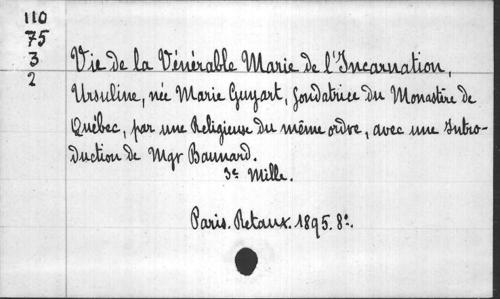 110
75
3
2
Vie de la Vénérable Marie de l'Incarnation,
Ursuline, née Marie Guyart, fondatrice du Monastère de
Québec, par une Religieuse du même ordre, avec une Intro-
duction de Mgr Baunard.
3e Mille.
Paris. Retaux. 1895. 8o.